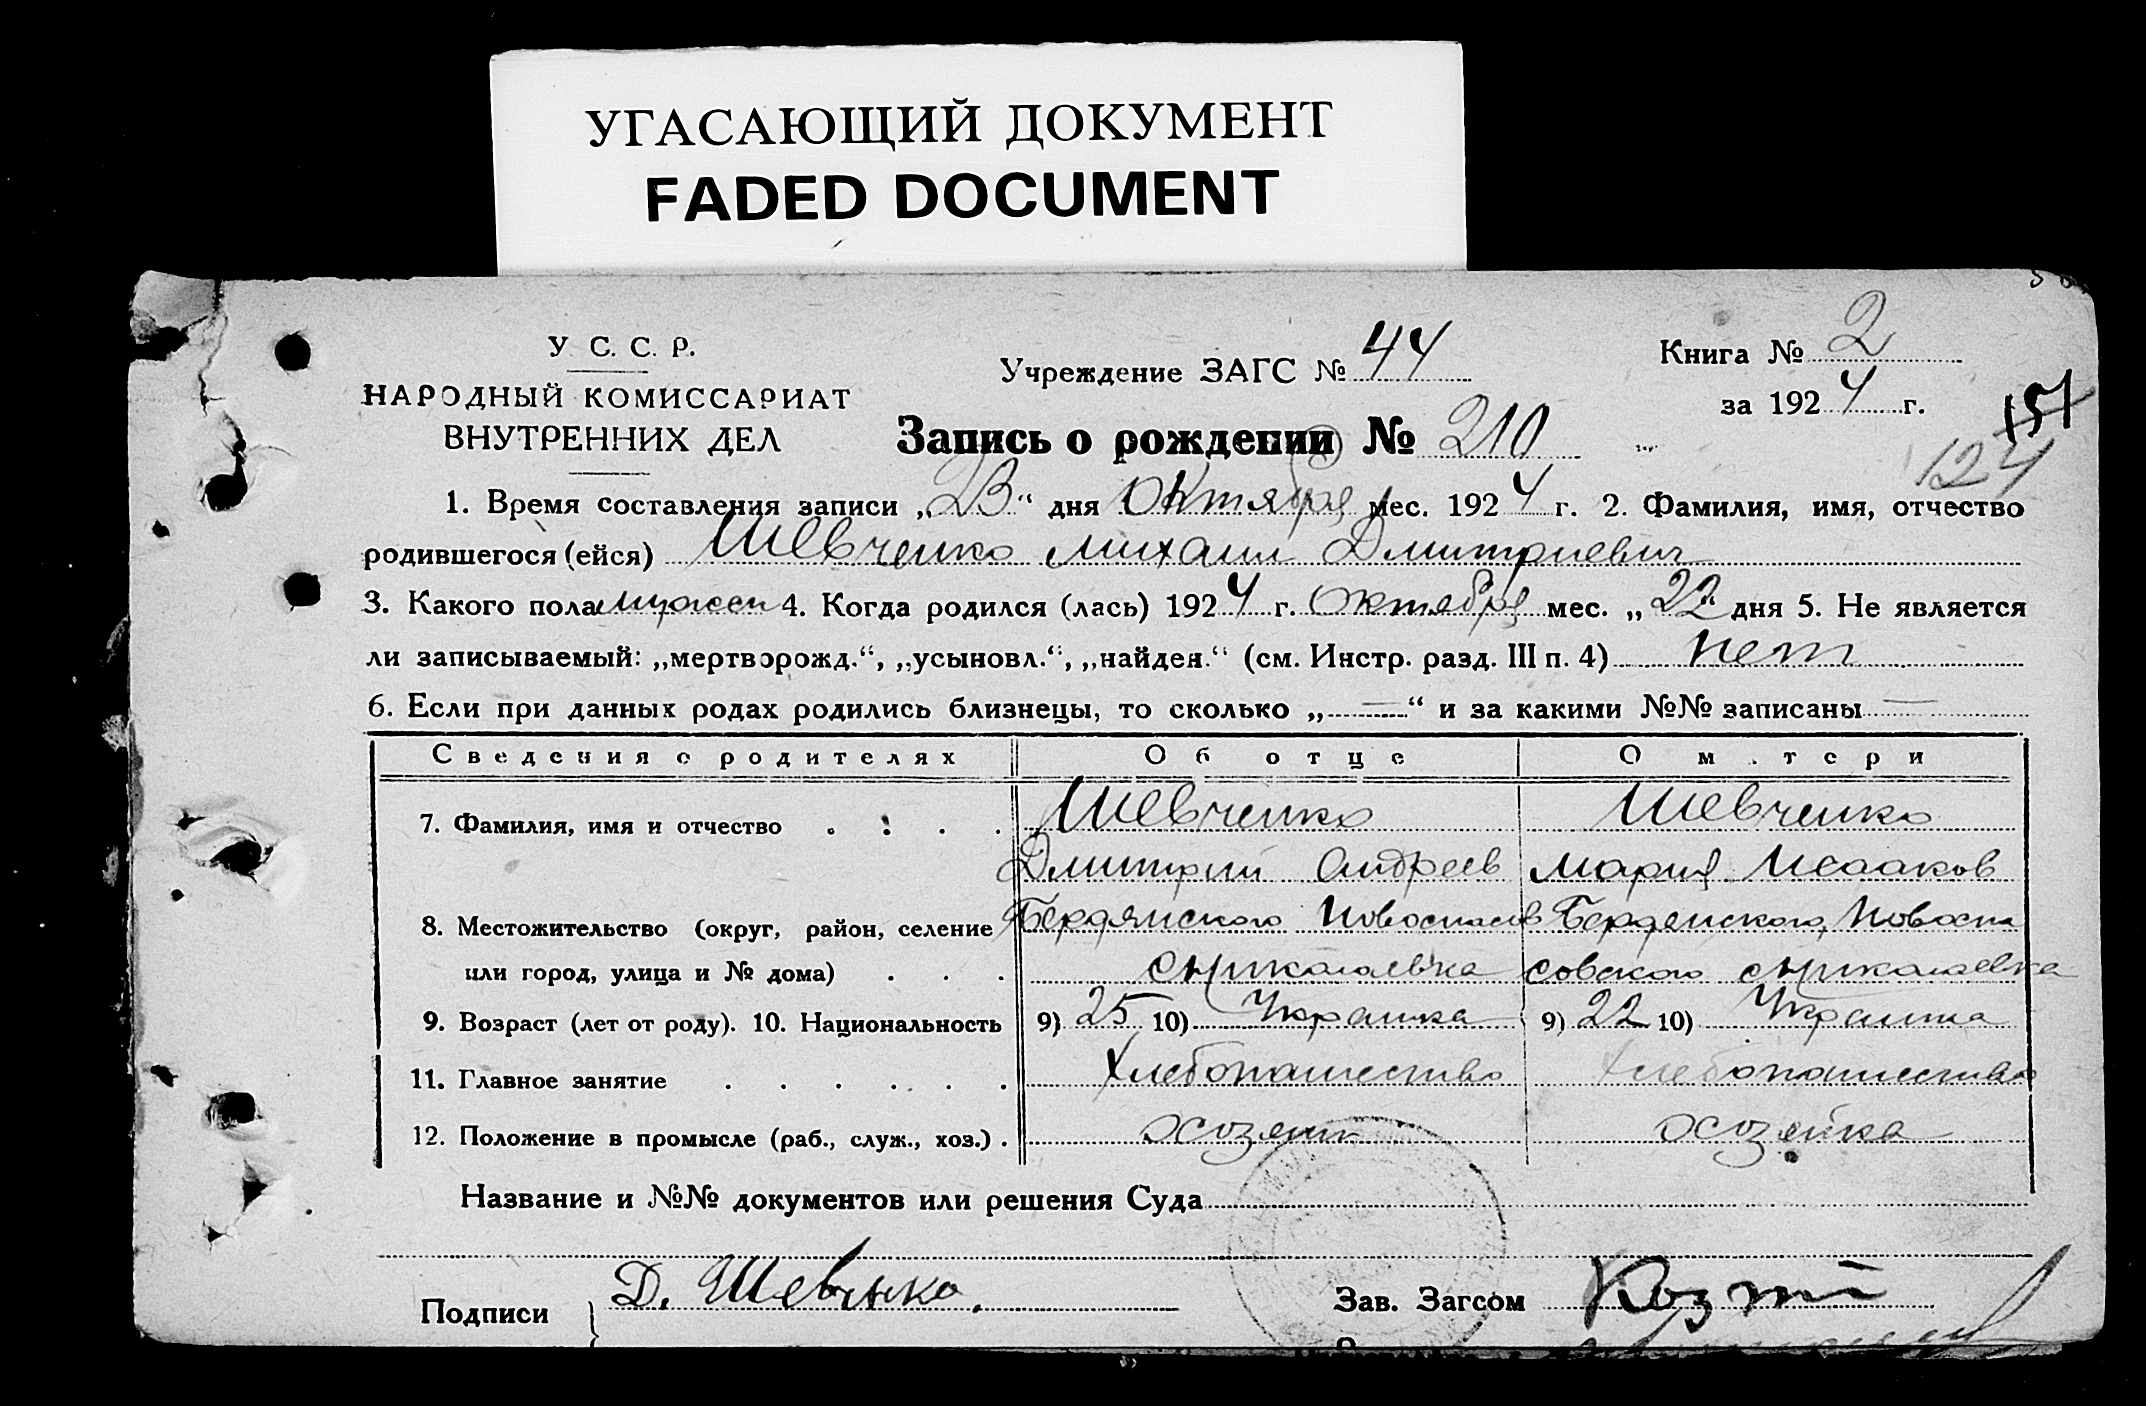 УГАСАЮЩИЙ ДОКУМЕНТ
FADED DOCUMENT
У. С. С. Р.
НАРОДНЫЙ КОМИССАРИАТ
ВНУТРЕННИХ ДЕЛ
Учреждение ЗАГС № 44
Книга № 2
за 1924 г.
151
124
Запись о рождении № 210
1. Время составления записи „23“ дня Октября мес. 1924 г. 2. Фамилия, имя, отчество
родившегося (ейся) Шевченко Михаил Дмитриевич
3. Какого пола мужеск 4. Когда родился (лась) 1924 г. Октября мес. „22“ дня 5. Не является
ли записываемый: „мертворожд.“, „усыновл.“, „найден.“ (см. Инстр. разд. III п. 4) нет
6. Если при данных родах родились близнецы, то сколько „—“ и за какими №№ записаны —
Сведения о родителях Об отце О матери
7. Фамилия, имя и отчество . . . . Шевченко Шевченко
Дмитрий Андреев Мария Исааков
8. Местожительство (округ, район, селение Бердянского Новоспасов Бердянского, Новоспа
или город, улица и № дома) . . . совского
9. Возраст (лет от роду). 10. Национальность 9) 25 10) Украинка 9) 22 10) Украинка
11. Главное занятие . . . . . . Хлебопашество Хлебопашество
12. Положение в промысле (раб., служ., хоз.) . хозяин хозяйка
Название и №№ документов или решения Суда
Подписи Д. Шевченко. Зав. Загсом